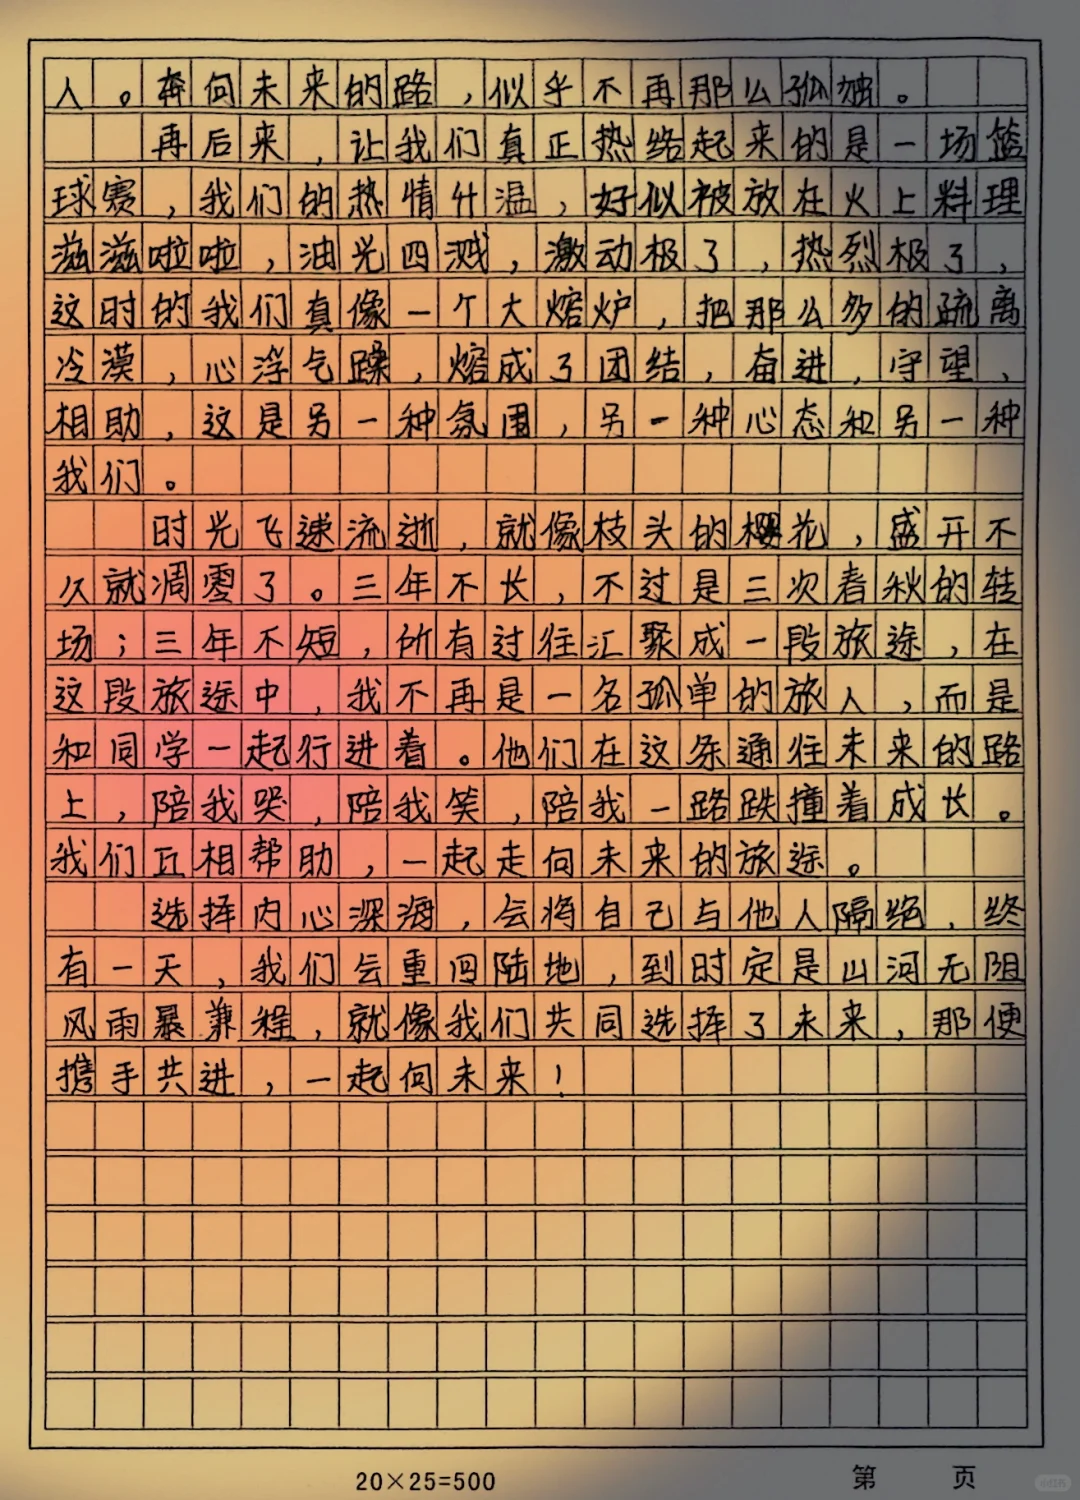 人。奔向未来的路，似乎不再那么孤独。
再后来，让我们真正热络起来的是一场篮
球赛，我们的热情升温，好似被放在火上料理
滋滋啦啦，油光四溅，激动极了，热烈极了，
这时的我们真像一个大熔炉，把那么多的疏离
冷漠，心浮气躁，熔成了团结，奋进，守望，
相助，这是另一种氛围，另一种心态和另一种
我们。
时光飞速流逝，就像枝头的樱花，盛开不
久就凋零了。三年不长，不过是三次春秋的转
场；三年不短，所有过往汇聚成一段旅途，在
这段旅途中，我不再是一名孤单的旅人，而是
和同学一起行进着。他们在这条通往未来的路
上，陪我哭，陪我笑，陪我一路跌撞着成长。
我们互相帮助，一起走向未来的旅途。
选择内心深海，会将自己与他人隔绝，终
有一天，我们会重回陆地，到时定是山河无阻
风雨暴兼程，就像我们共同选择了未来，那便
携手共进，一起向未来！
20×25=500
第 页